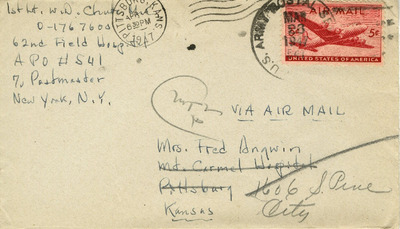 1st Lt. W.D.
O-1767600
62nd Field Hospital
A P O # 541
% Postmaster
New York, N.Y.
PITTSBURG, KANS.
APR
6 30 PM
1947
U.S. ARMY POSTAL
MAR
AIR MAIL
5¢
UNITED STATES OF AMERICA
VIA AIR MAIL
Mrs. Fred Angwin
Mt. Carmel Hospital
Pittsburg 1606 S. Pine
Kansas City